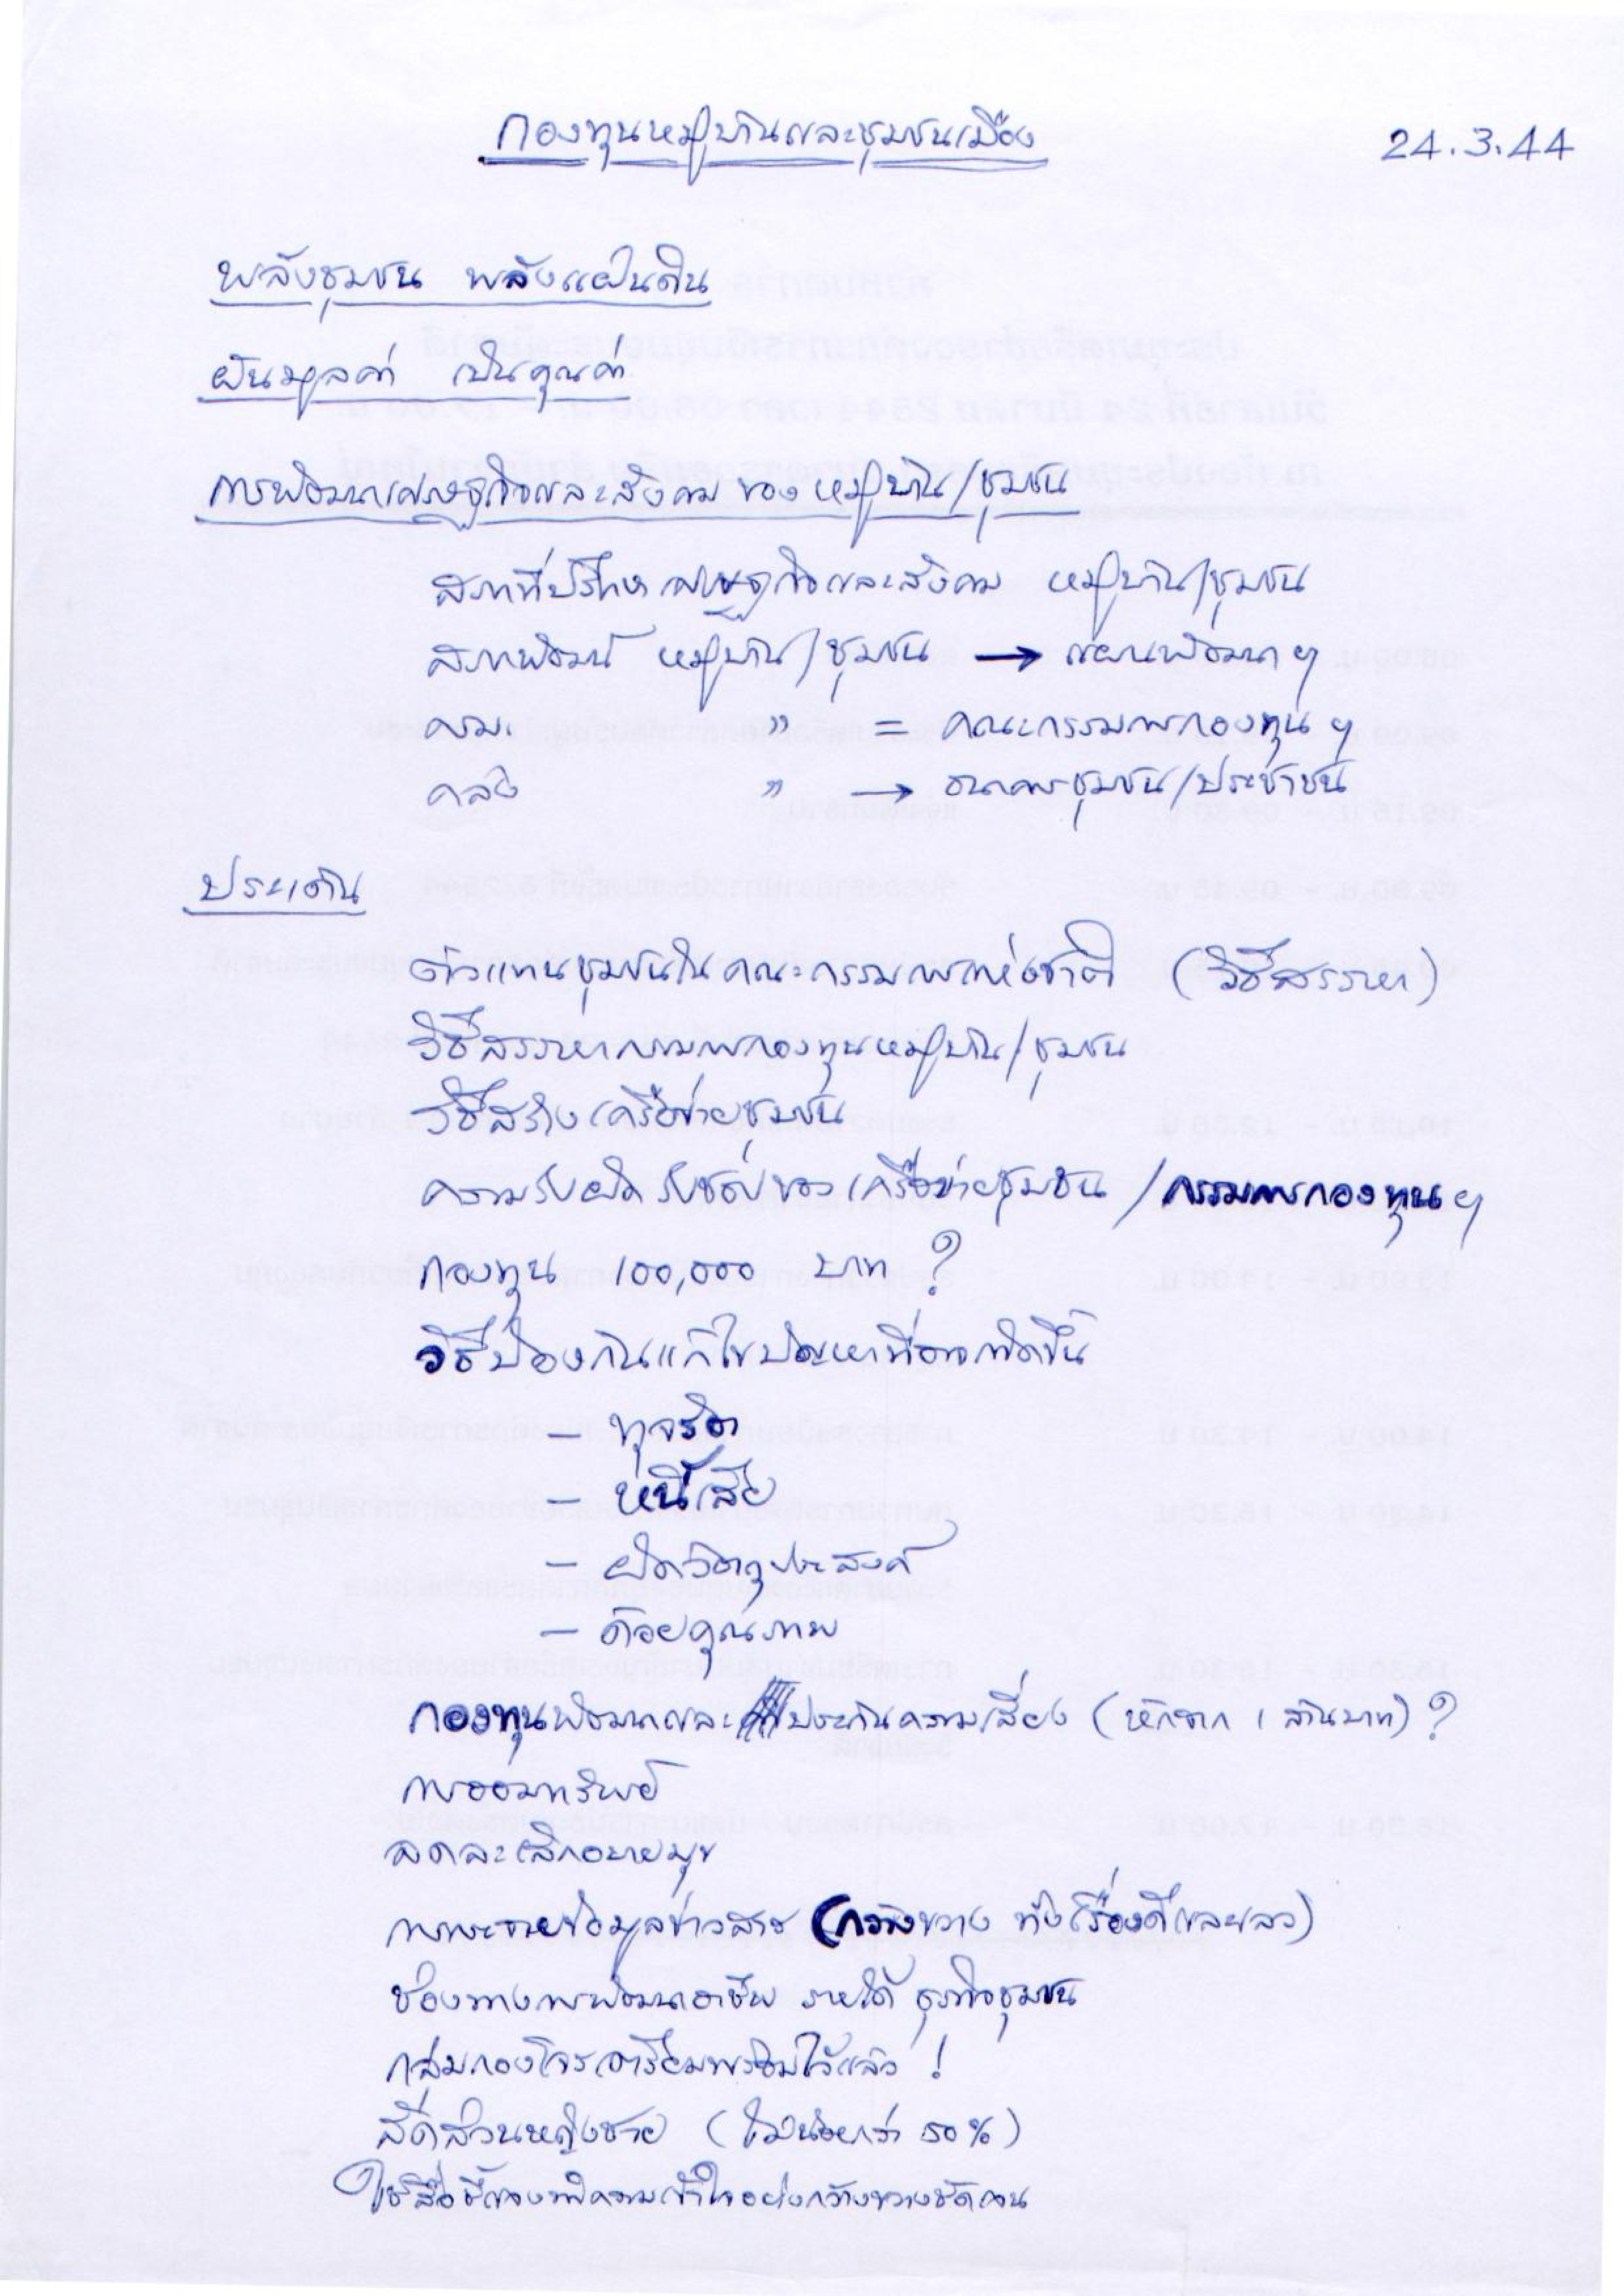 กองทุนหมู่บ้านและชุมชนเมือง
24.3.44
พลังชุมชน พลังแผ่นดิน
ผันมูลค่า เป็นคุณค่า
การพัฒนาเศรษฐกิจและสังคม ของ หมู่บ้าน/ชุมชน
สภาที่ปรึกษาเศรษฐกิจและสังคม หมู่บ้าน/ชุมชน
สภาพัฒน์ หมู่บ้าน/ชุมชน → แผนพัฒนาฯ
ครม. " = คณะกรรมการกองทุนฯ
คลัง " → ธนาคารชุมชน/ประชาชน
ประเด็น
ตัวแทนชุมชนในคณะกรรมการแห่งชาติ (วิธีสรรหา)
วิธีสรรหากรรมการกองทุนหมู่บ้าน/ชุมชน
วิธีสร้างเครือข่ายชุมชน
ความรับผิดรับชอบของเครือข่ายชุมชน/กรรมการกองทุนฯ
กองทุน 100,000 บาท ?
วิธีป้องกันแก้ไขปัญหาที่อาจเกิดขึ้น
- ทุจริต
- หนี้เสีย
- ผิดวัตถุประสงค์
- ด้อยคุณภาพ
กองทุนพัฒนาและประกันความเสี่ยง (หักจาก 1 ล้านบาท) ?
การออมทรัพย์
ลดละเลิกอบายมุข
การกระจายข้อมูลข่าวสาร (กว้างขวาง ทั้งเรื่องดีและเลว)
ช่องทางการพัฒนาอาชีพ รายได้ ธุรกิจชุมชน
กลุ่มกองโจรเตรียมพร้อมไว้แล้ว !
สัดส่วนหญิงชาย (ไม่น้อยกว่า 50%)
ใช้สื่อชี้แจงทำความเข้าใจอย่างกว้างขวางชัดเจน